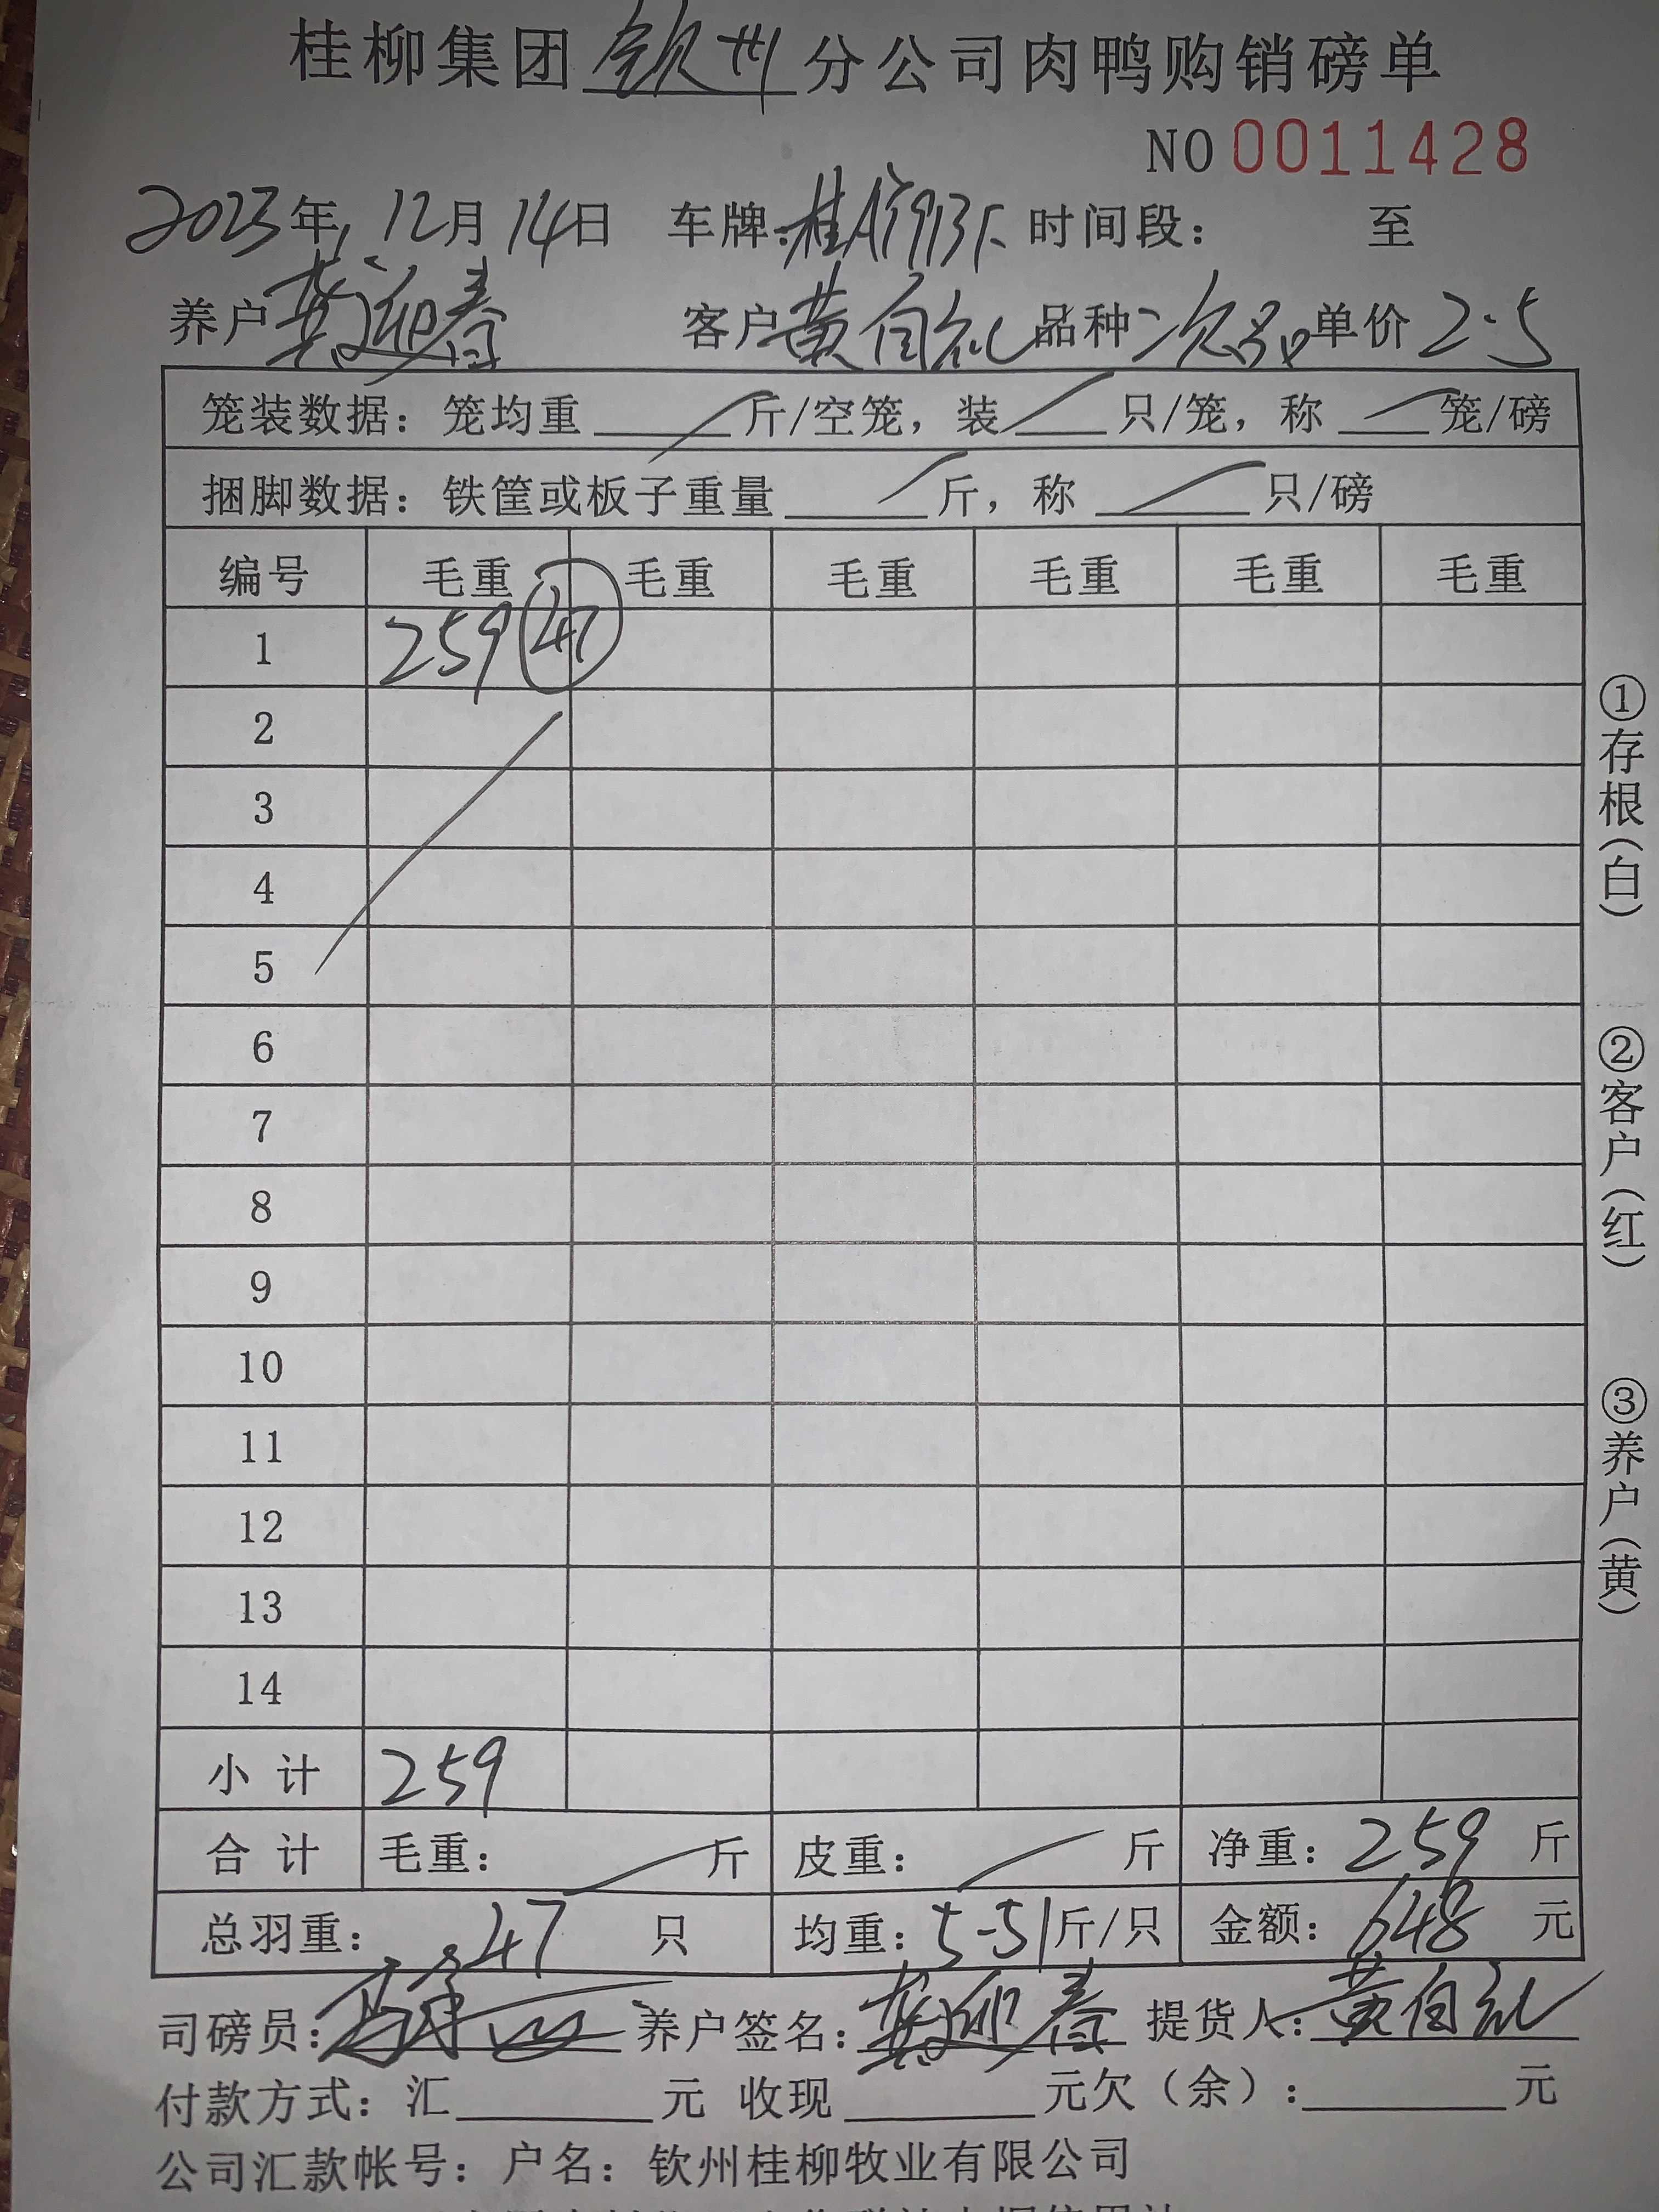 桂柳集团钦州分公司肉鸭购销磅单
NO 0011428
2023年12月14日 车牌: 时间段: 至
养户龚迎春 客户黄自礼 品种次品 单价2.5
笼装数据: 笼均重 斤/空笼, 装 只/笼, 称 笼/磅
捆脚数据: 铁筐或板子重量 斤, 称 只/磅
编号 毛重 毛重 毛重 毛重 毛重 毛重
1 259 47
2
3
4
5
6
7
8
9
10
11
12
13
14
小计 259
合计 毛重: 斤 皮重: 斤 净重: 259 斤
总羽重: 47 只 均重: 5.51斤/只 金额: 648 元
司磅员: 养户签名: 龚迎春 提货人: 黄自礼
付款方式: 汇 元 收现 元欠(余): 元
公司汇款帐号: 户名: 钦州桂柳牧业有限公司
①存根(白)
②客户(红)
③养户(黄)